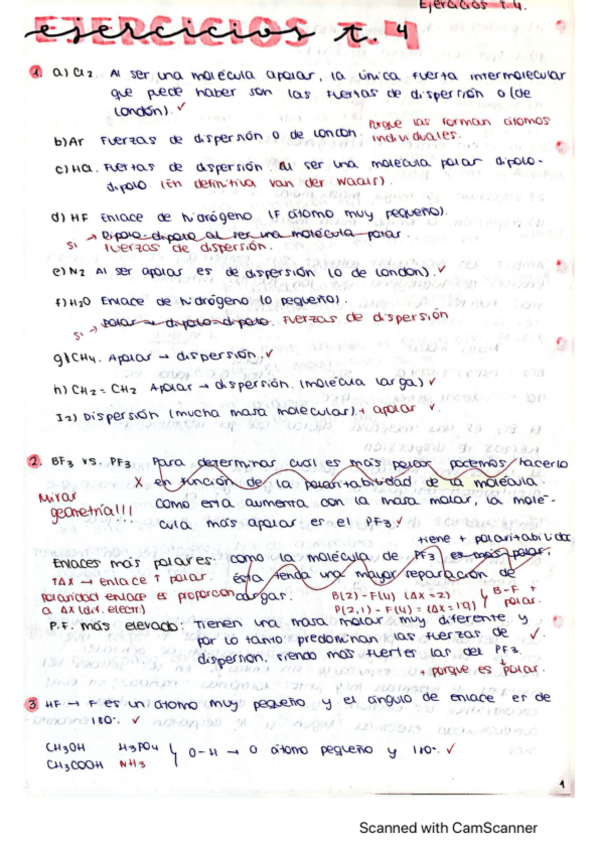 Ejercicios T.4.
EJERCICIOS t. 4
1. a) Cl2. Al ser una molécula apolar, la única fuerza intermolecular
que puede haber son las fuerzas de dispersión o (de
London). ✓
b) Ar Fuerzas de dispersión o de London. Porque las forman átomos
individuales.
c) HCl. Fuerzas de dispersión. Al ser una molécula polar dipolo-
dipolo. (En definitiva van der Waals).
d) HF Enlace de hidrógeno (F átomo muy pequeño).
Si → Dipolo-dipolo al ser una molécula polar.
Fuerzas de dispersión.
e) N2 Al ser apolar es de dispersión (o de London). ✓
f) H2O Enlace de hidrógeno (O pequeño).
Si → Polar → dipolo-dipolo. Fuerzas de dispersión
g) CH4. Apolar → dispersión. ✓
h) CH2=CH2 Apolar → dispersión. (molécula larga) ✓
I2) Dispersión (mucha masa molecular). + apolar ✓.
2. BF3 vs. PF3. Para determinar cuál es más polar podemos hacerlo
X en función de la polaritabilidad de la molécula.
Mirar geometría!!! Como esta aumenta con la masa molar, la molé-
cula más apolar es el PF3. ✓
tiene + polaritabilidad
Enlaces más polares: como la molécula de PF3 es más polar,
↑ΔX → enlace ↑ polar. ésta tendrá una mayor separación de
Polaridad enlace es proporcional a ΔX (dif. electr.) cargas. B(2)-F(4) (ΔX=2)
P(2,1)-F(4) = (ΔX=1,9) B-F + polar.
P.F. más elevado: Tienen una masa molar muy diferente y
por lo tanto predominan las fuerzas de ✓.
dispersión, siendo más fuertes las del PF3.
+ porque es polar.
3. HF → F es un átomo muy pequeño y el ángulo de enlace es de
180º. ✓
CH3OH H3PO4
CH3COOH NH3 O-H → O átomo pequeño y 180º. ✓
1
Scanned with CamScanner